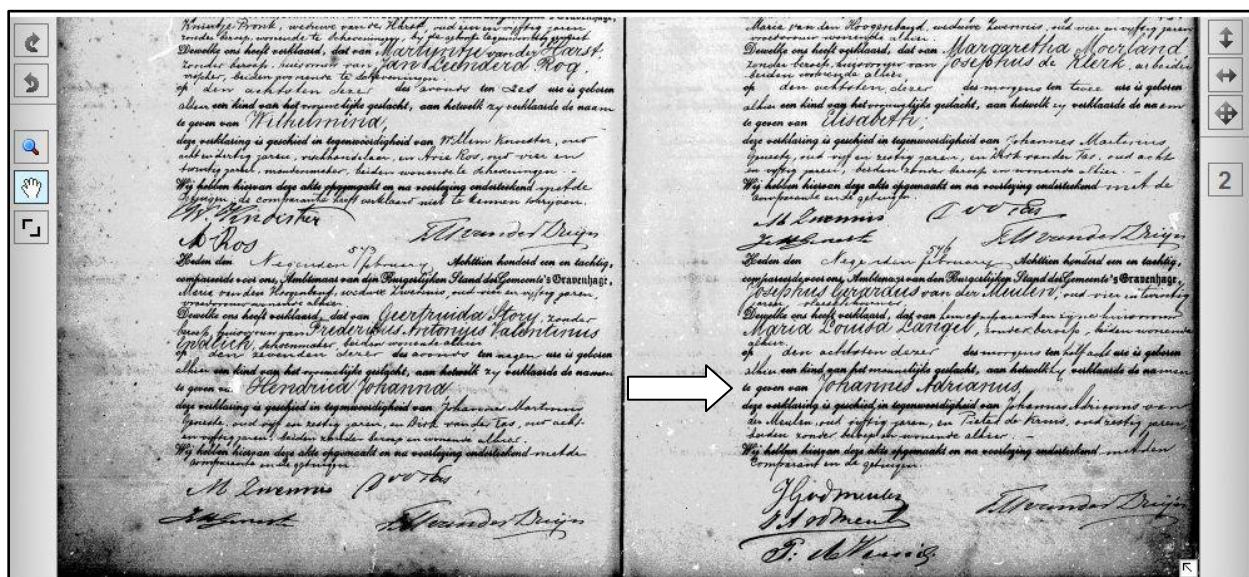 Kniertje Pronk, weduwe van der Harst, oud een en vijftig jaren,
zonder beroep, wonende te Scheveningen, bij de geboorte tegenwoordig geweest
Dewelke ons heeft verklaard, dat van Martijntje van der Harst,
zonder beroep, huisvrouw van Jan Leenderd Rog,
visscher, beiden wonende te Scheveningen.
op den achtsten dezer des avonds ten zes ure is geboren
alhier een kind van het vrouwelijke geslacht, aan hetwelk zy verklaarde de naam
te geven van Wilhelmina,
deze verklaring is geschied in tegenwoordigheid van Willem Knoester, oud
acht en dertig jaren, vischhandelaar, en Arie Ros, oud vier en
twintig jaren, mandenmaker, beiden wonende te Scheveningen. -
Wij hebben hiervan deze akte opgemaakt en na voorlezing onderteekend met de
getuigen, de comparante heeft verklaard niet te kunnen schrijven.
W Knoester
A Ros
573
Heden den Negenden februarij Achttien honderd een en tachtig,
compareerde voor ons, Ambtenaar van den Burgerlijken Stand der Gemeente 's Gravenhage,
Maria van den Hoogenband, weduwe Zwennis, oud vier en vijftig jaren,
vroedvrouw wonende alhier
Dewelke ons heeft verklaard, dat van Geertruida Story, zonder
beroep, huisvrouw van Fredericus Antonius Valentinus
schoenmaker, beiden wonende alhier
op den zevenden dezer des avonds ten negen ure is geboren
alhier een kind van het vrouwelijke geslacht, aan hetwelk zy verklaarde de namen
te geven van Hendrica Johanna,
deze verklaring is geschied in tegenwoordigheid van Johannes Martinus
oud vijf en zestig jaren, en Dirk van der Tas, oud acht-
en vijftig jaren, beiden zonder beroep en wonende alhier.
Wij hebben hiervan deze akte opgemaakt en na voorlezing onderteekend met de
comparante en de getuigen.
M Zwennis
Maria van den Hoogenband, weduwe Zwennis, oud vier en vijftig jaren
vroedvrouw wonende alhier.
Dewelke ons heeft verklaard, dat van Margaretha Moerland
zonder beroep, huisvrouw van Josephus de Klerk, arbeider
beiden wonende alhier,
op den achtsten dezer des morgens ten twee ure is geboren
alhier een kind van het vrouwelijke geslacht, aan hetwelk zy verklaarde de naam
te geven van Elisabeth,
deze verklaring is geschied in tegenwoordigheid van Johannes Martinus
oud vijf en zestig jaren, en Dirk van der Tas, oud acht
en vijftig jaren, beiden zonder beroep en wonende alhier. -
Wij hebben hiervan deze akte opgemaakt en na voorlezing onderteekend met de
comparante en de getuigen.
M Zwennis
Heden den Negenden februarij Achttien honderd een en tachtig,
compareerde voor ons, Ambtenaar van den Burgerlijken Stand der Gemeente 's Gravenhage,
Josephus Gerardus van der Meulen, oud vier en twintig
jaren
Dewelke ons heeft verklaard, dat van hem comparant en zijne huisvrouw
Maria Louisa Langel, zonder beroep, beiden wonende
alhier.
op den achtsten dezer des morgens ten half acht ure is geboren
alhier een kind van het mannelijke geslacht, aan hetwelk hy verklaarde de namen
te geven van Johannes Adrianus,
deze verklaring is geschied in tegenwoordigheid van Johannes Adrianus van
der Meulen, oud vijftig jaren, en Pieter de Kruis, oud zestig jaren,
beiden zonder beroep en wonende alhier. -
Wij hebben hiervan deze akte opgemaakt en na voorlezing onderteekend met den
Comparant en de getuigen.
2